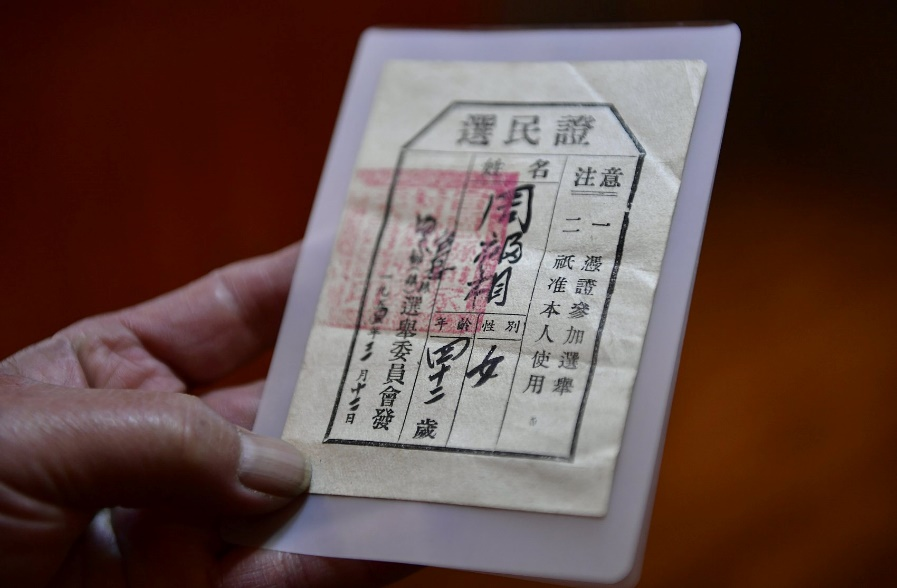 選民證
注意
一 憑證參加選舉
二 祇准本人使用
姓名
周福相
性別
女
年齡
四十二歲
選舉委員會發
一九五四年三月十二日